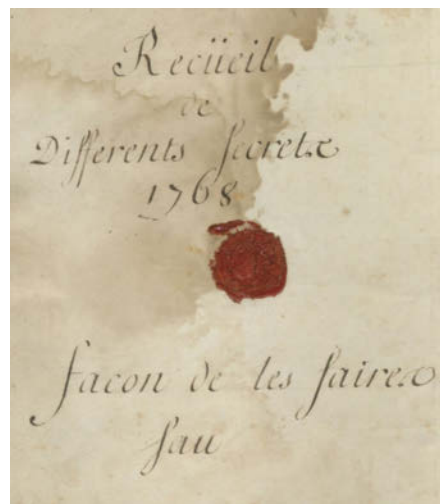 Recüeil
de
Differents secrets
1768
facon de les faire
sau